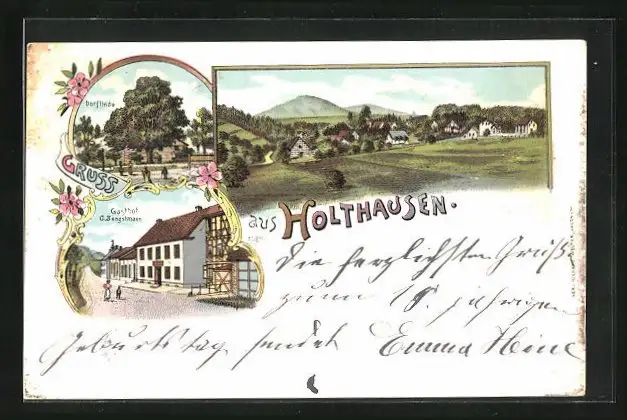 Dorflinde
GRUSS
Gasthof
aus HOLTHAUSEN.
Die herzlichsten Grüße
zum 18. jährigen
Geburtstag sendet Emma Heine